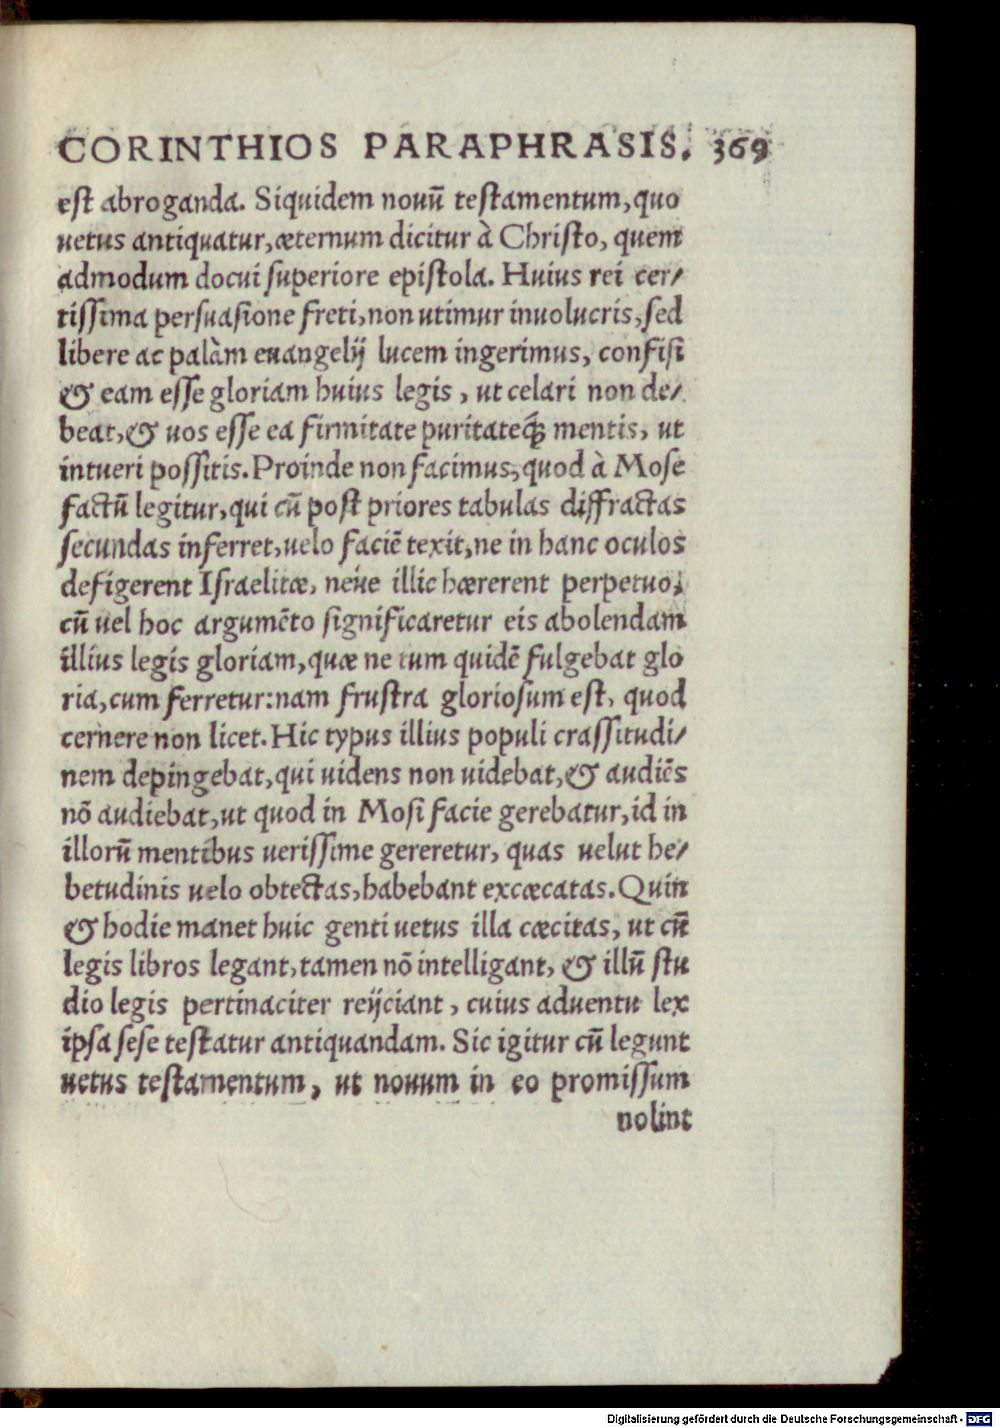 CORINTHIOS PARAPHRASIS. 369
est abroganda. Siquidem nouũ testamentum, quo
uetus antiquatur, æternum dicitur à Christo, quem
admodum docui superiore epistola. Huius rei cer/
tissima persuasione freti, non utimur inuolucris, sed
libere ac palàm euangelij lucem ingerimus, confisi
& eam esse gloriam huius legis, ut celari non de/
beat, & uos esse ea firmitate puritateq́ꝫ mentis, ut
intueri possitis. Proinde non facimus, quod à Mose
factũ legitur, qui cũ post priores tabulas diffractas
secundas inferret, uelo faciẽ texit, ne in hanc oculos
defigerent Israelitæ, néue illic hærerent perpetuo,
cũ uel hoc argumẽto significaretur eis abolendam
illius legis gloriam, quæ ne tum quidẽ fulgebat glo
ria, cum ferretur: nam frustra gloriosum est, quod
cernere non licet. Hic typus illius populi crassitudi/
nem depingebat, qui uidens non uidebat, & audiẽs
nõ audiebat, ut quod in Mosi facie gerebatur, id in
illorũ mentibus uerissime gereretur, quas uelut he/
betudinis uelo obtectas, habebant excæcatas. Quin
& hodie manet huic genti uetus illa cæcitas, ut cũ
legis libros legant, tamen nõ intelligant, & illũ stu
dio legis pertinaciter reijciant, cuius aduentu lex
ipsa sese testatur antiquandam. Sic igitur cũ legunt
uetus testamentum, ut nouum in eo promissum
nolint
Digitalisierung gefördert durch die Deutsche Forschungsgemeinschaft - DFG